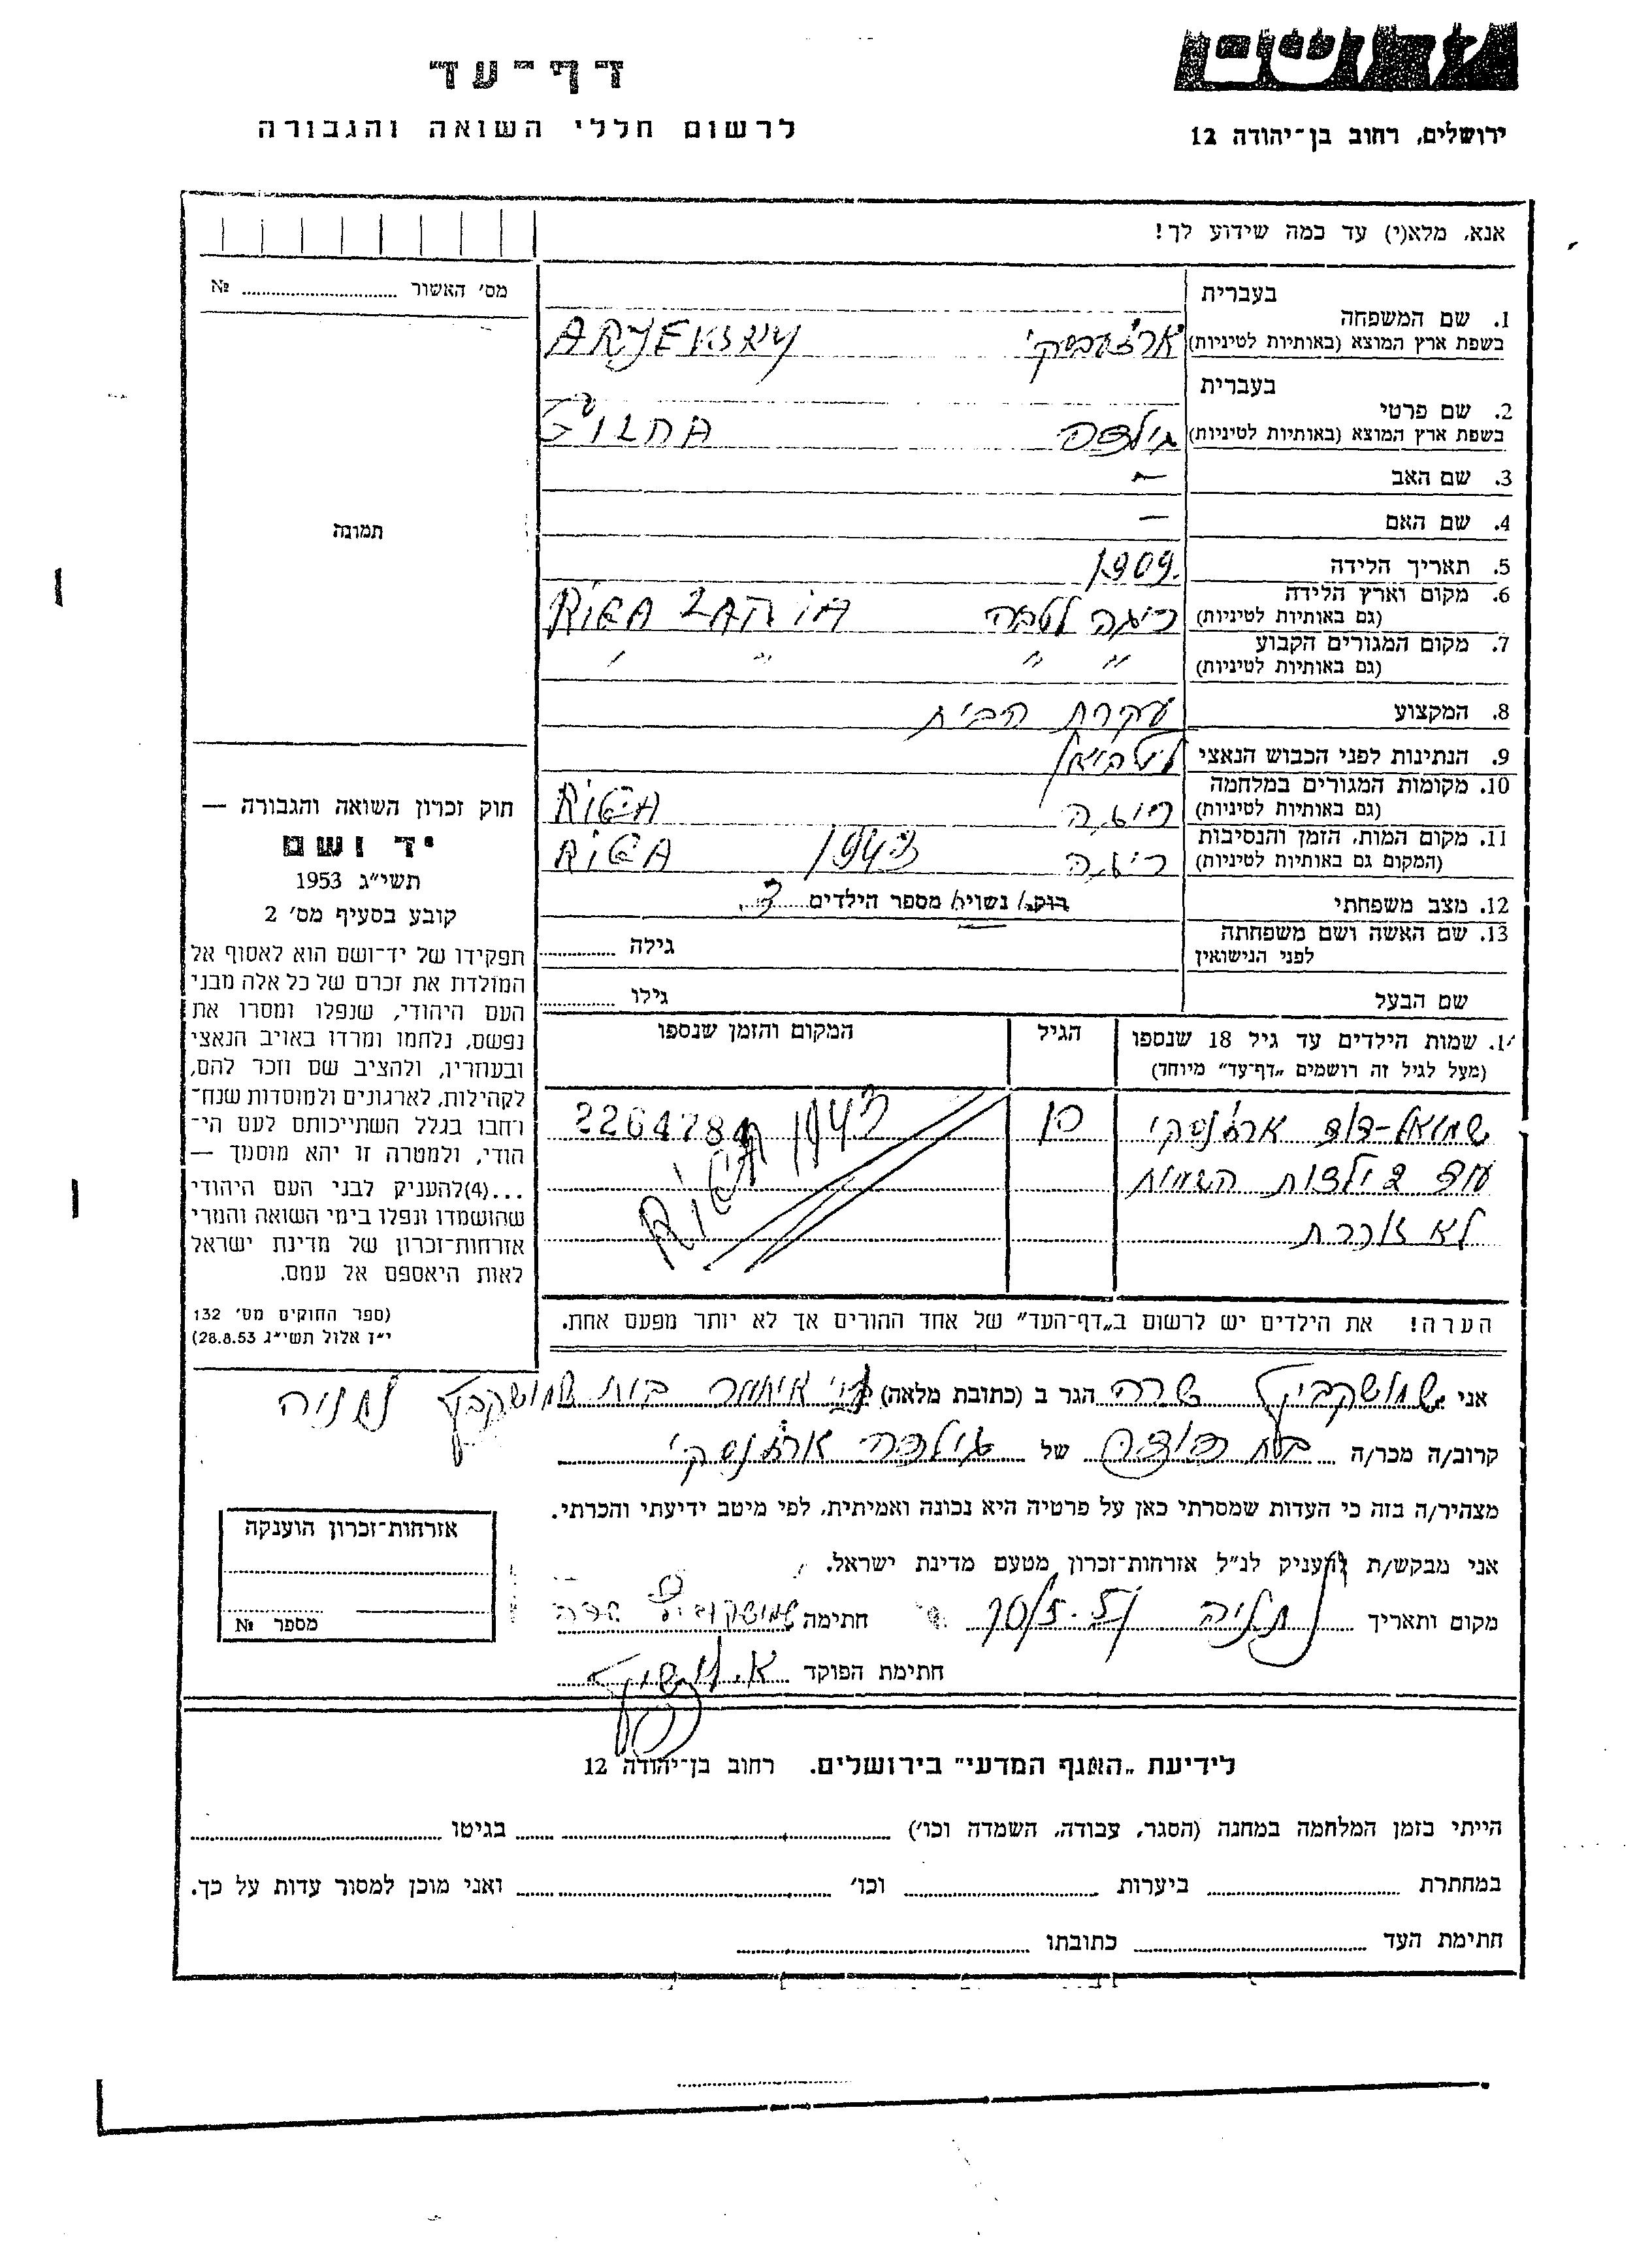 דף-עד
לרשום חללי השואה והגבורה
ירושלים, רחוב בן-יהודה 12
אנא, מלא(י) עד כמה שידוע לך!
מס' האשור № 
בעברית
1. שם המשפחה
בשפת ארץ המוצא (באותיות לטיניות)
בעברית
2. שם פרטי
בשפת ארץ המוצא (באותיות לטיניות) גילדה GILDA
3. שם האב —
4. שם האם —
תמונה
5. תאריך הלידה 1909
6. מקום וארץ הלידה
(גם באותיות לטיניות) ריגה RIGA
7. מקום המגורים הקבוע
(גם באותיות לטיניות) " " " "
8. המקצוע עקרת הבית
9. הנתינות לפני הכבוש הנאצי
10. מקומות המגורים במלחמה
(גם באותיות לטיניות) ריגה RIGA
11. מקום המות, הזמן והנסיבות
(המקום גם באותיות לטיניות) ריגה 1943 RIGA
12. מצב משפחתי רוק/ה נשוי/ה מספר הילדים 3
13. שם האשה ושם משפחתה
לפני הנישואין גילה
שם הבעל גילו
1. שמות הילדים עד גיל 18 שנספו הגיל המקום והזמן שנספו
(מעל לגיל זה רושמים "דף-עד" מיוחד)
שמואל-דוד 2264784
עוד 2 ילדות השמות RIGA 1943
לא זוכרת
הערה! את הילדים יש לרשום ב"דף-העד" של אחד ההורים אך לא יותר מפעם אחת.
חוק זכרון השואה והגבורה —
יד ושם
תשי"ג 1953
קובע בסעיף מס' 2
תפקידו של יד-ושם הוא לאסוף אל
המולדת את זכרם של כל אלה מבני
העם היהודי, שנפלו ומסרו את
נפשם, נלחמו ומרדו באויב הנאצי
ובעוזריו, ולהציב שם וזכר להם,
לקהילות, לארגונים ולמוסדות שנח-
רחבו בגלל השתייכותם לעם הי-
הודי, ולמטרה זו יהא מוסמך —
...(4)להעניק לבני העם היהודי
שהושמדו ונפלו בימי השואה והמרי
אזרחות-זכרון של מדינת ישראל
לאות היאספם אל עמם.
(ספר החוקים מס' 132
י"ז אלול תשי"ג 28.8.53)
אני שרה הגר ב (כתובת מלאה) בית נתניה
קרוב/ה מכר/ה בת דודה של גילדה
מצהיר/ה בזה כי העדות שמסרתי כאן על פרטיה היא נכונה ואמיתית, לפי מיטב ידיעתי והכרתי.
אני מבקש/ת להעניק לנ"ל אזרחות-זכרון מטעם מדינת ישראל.
מקום ותאריך נתניה חתימה שרה
חתימת הפוקד
אזרחות-זכרון הוענקה
מספר №
לידיעת "האגף המדעי" בירושלים. רחוב בן-יהודה 12
הייתי בזמן המלחמה במחנה (הסגר, עבודה, השמדה וכו') בגיטו
במחתרת ביערות וכו' ואני מוכן למסור עדות על כך.
חתימת העד כתובתו